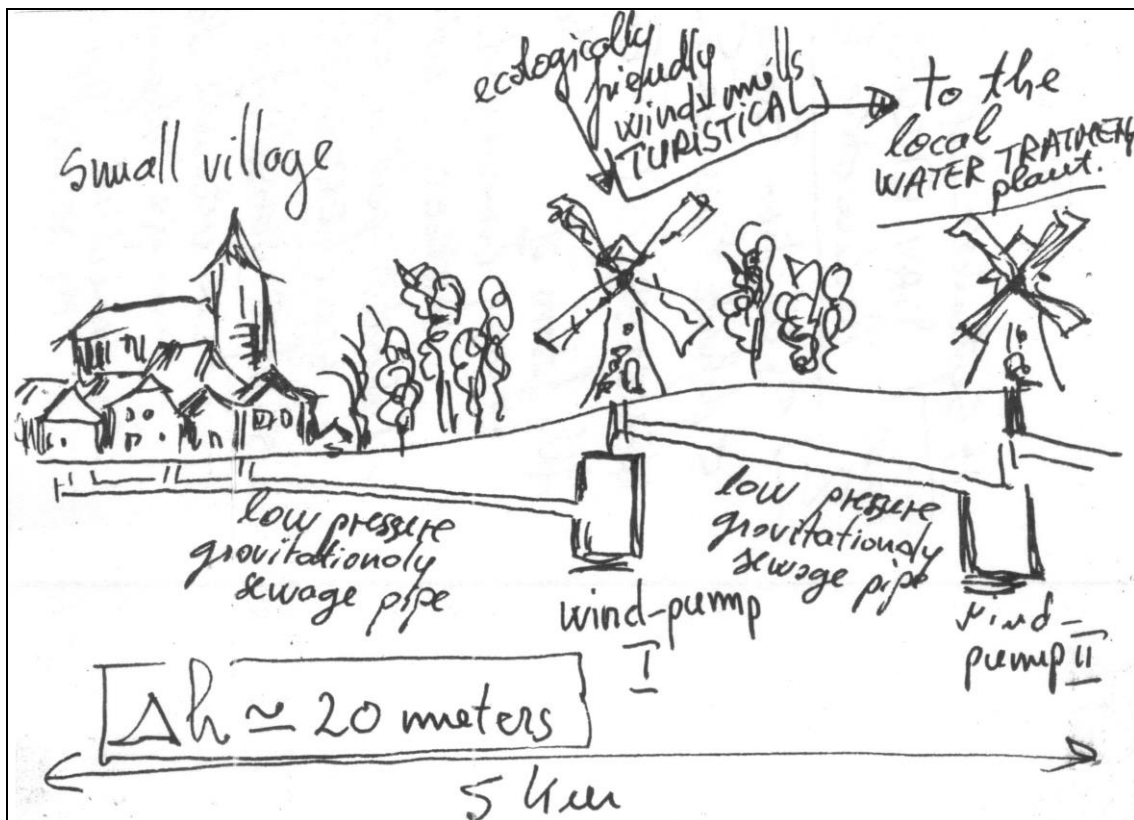 small village
ecologically
friendly
windy mills
TURISTICA
to the
local
WATER TRATMENT
plant.
low pressure
gravitationaly
sewage pipe
wind-pump
I
low pressure
gravitationaly
sewage pipe
wind-
pump II
Δh ≃ 20 meters
5 km